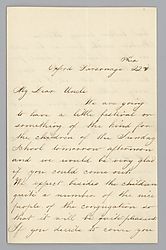 Oxford Parsonage
My Dear Uncle
We are going
to have a little festival or
something of the kind for
the children of the Sunday
School tomorrow afternoon
and we would be very glad
if you could come out
We expect besides the children
quite a number of the nice
people of the congregation so
that it will be quite pleasant
If you decide to come you